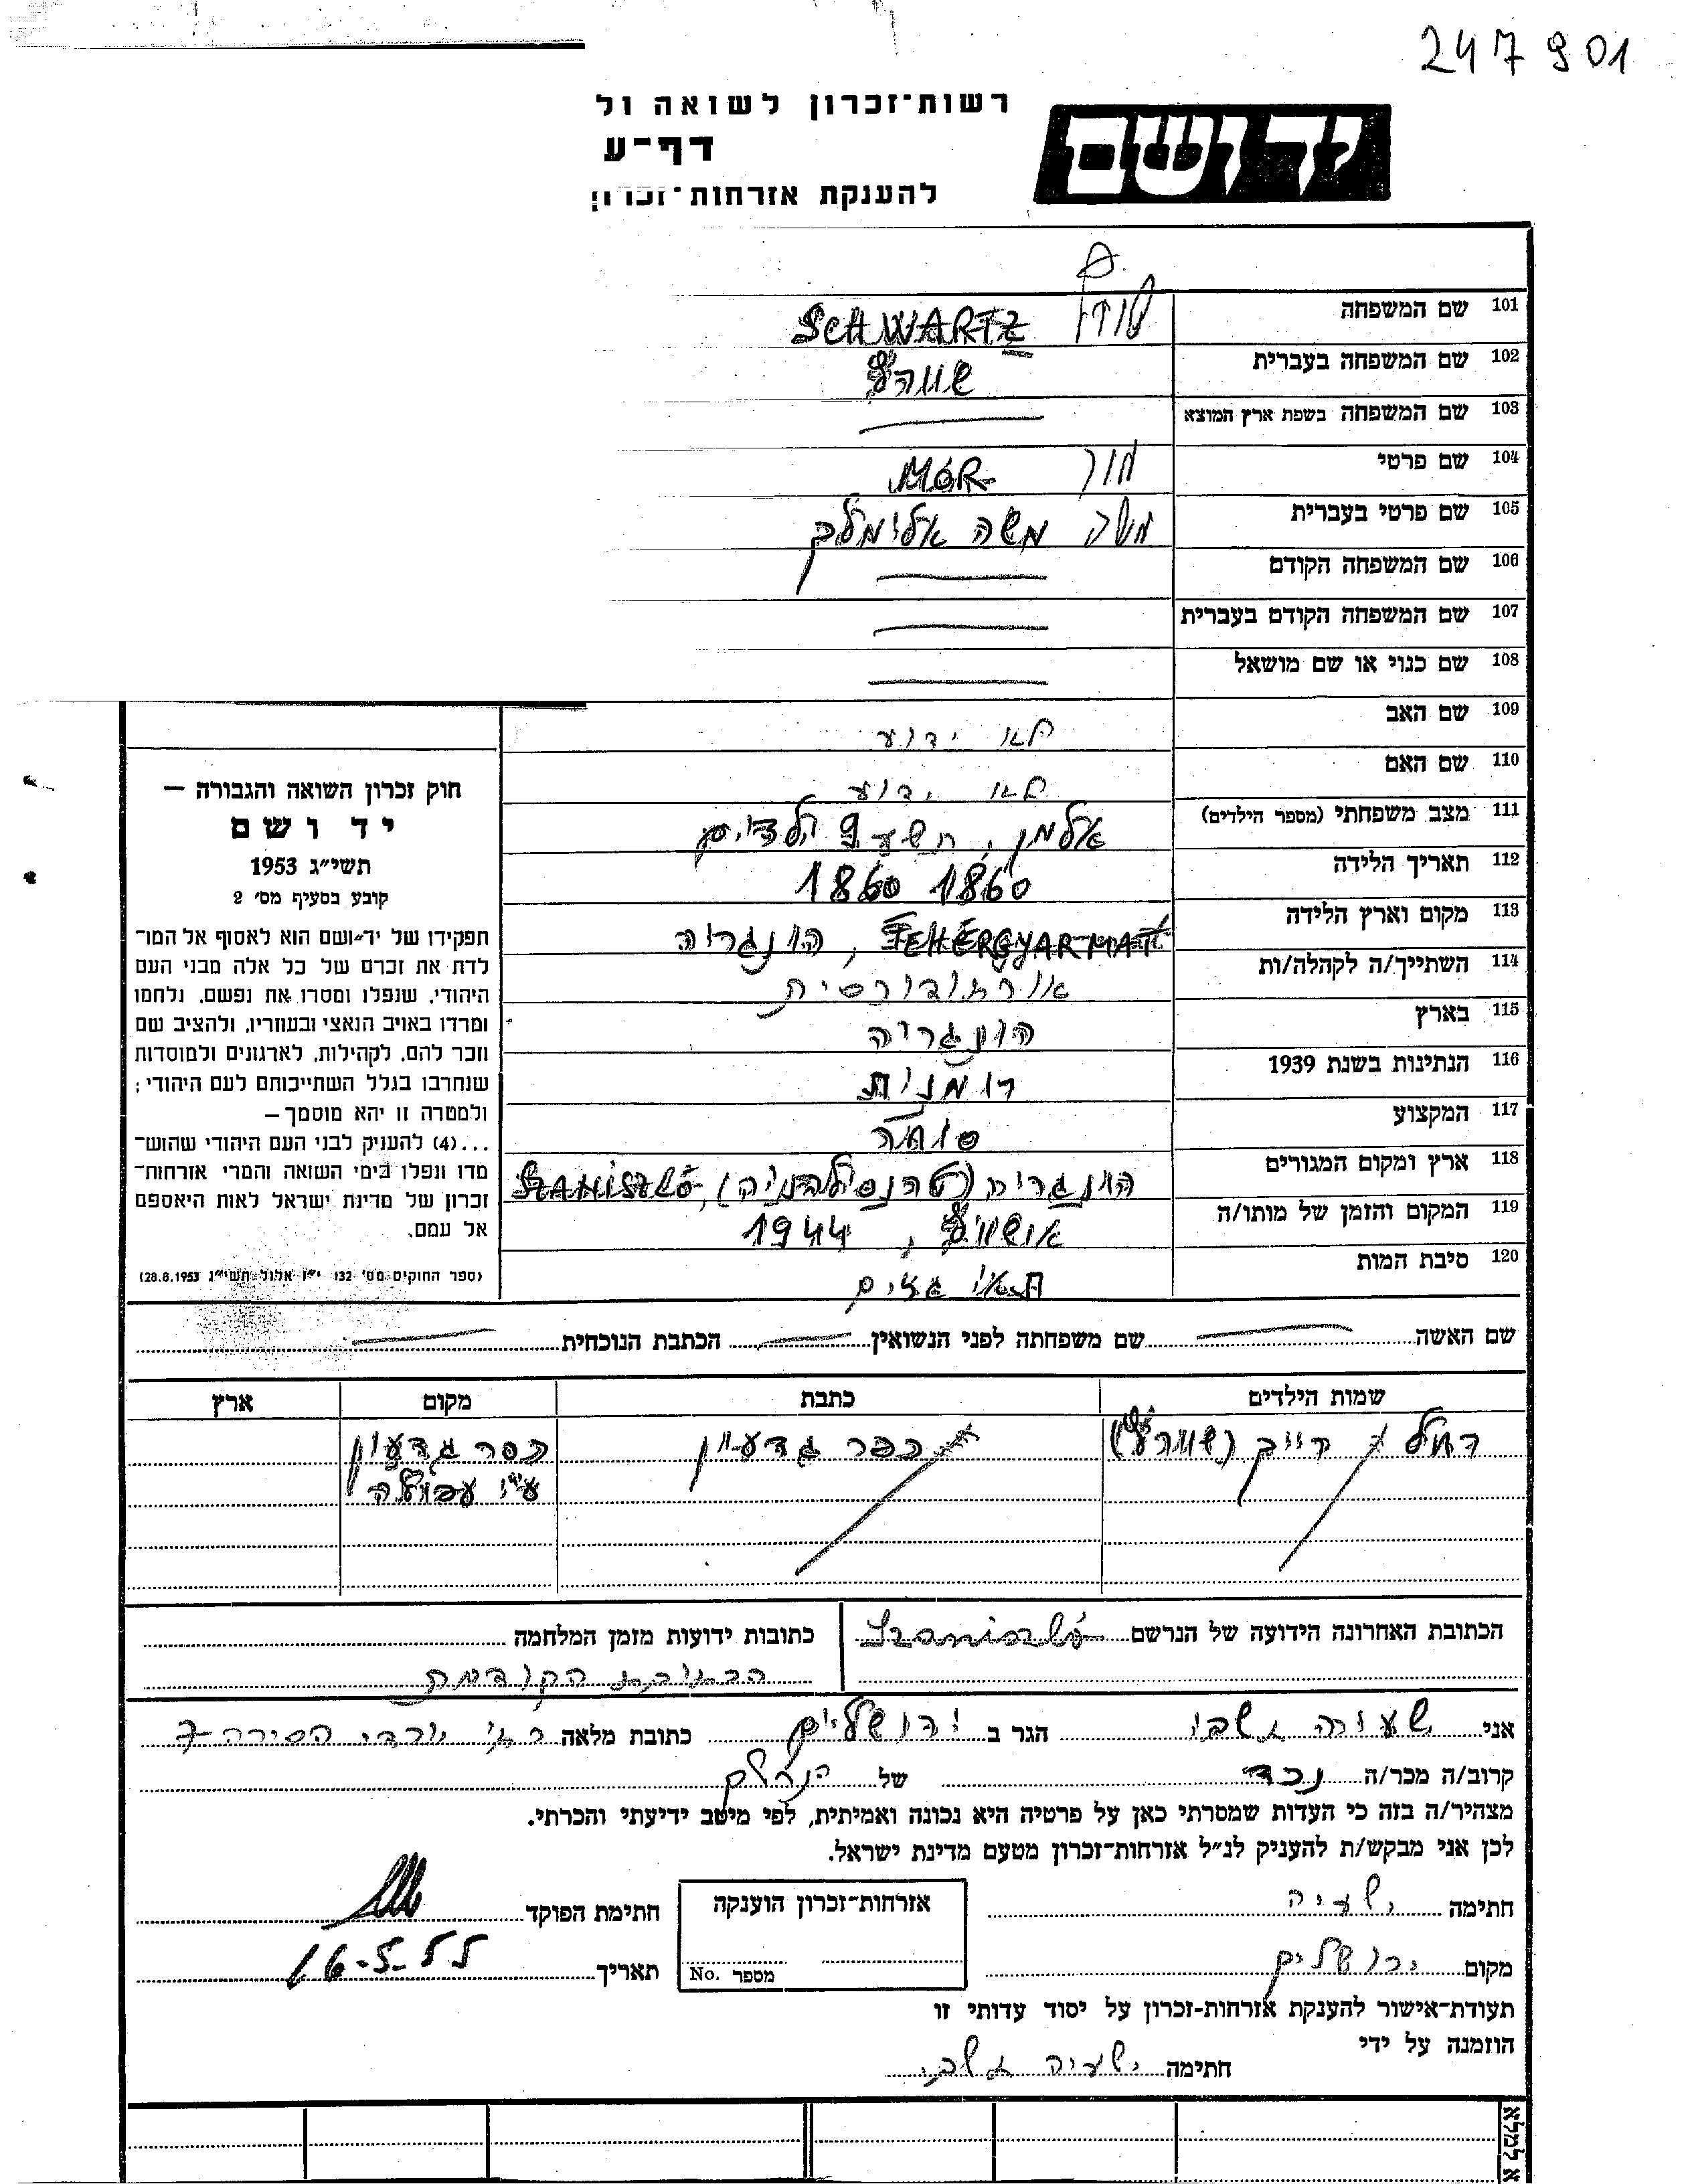 247901
רשות־זכרון לשואה ול
יד ושם
דף־ע
להענקת אזרחות־זכרון
101 שם המשפחה SCHWARTZ
102 שם המשפחה בעברית שוורץ
103 שם המשפחה בשפת ארץ המוצא
104 שם פרטי מור MÓR
105 שם פרטי בעברית משה משה אלימלך
106 שם המשפחה הקודם
107 שם המשפחה הקודם בעברית
108 שם כנוי או שם מושאל
109 שם האב לא ידוע
110 שם האם לא ידוע
111 מצב משפחתי (מספר הילדים) אלמן, תשעה 9 ילדים
112 תאריך הלידה 1860 1860
113 מקום וארץ הלידה FEHÉRGYARMAT, הונגריה
114 השתייך/ה לקהלה/ות אורתודוכסית
115 בארץ הונגריה
116 הנתינות בשנת 1939 רומנית
117 המקצוע סוחר
118 ארץ ומקום המגורים הונגריה (טרנסילבניה), SZANISZLÓ
119 המקום והזמן של מותו/ה אושוויץ, 1944
120 סיבת המות תאי גזים
חוק זכרון השואה והגבורה —
יד ושם
תשי״ג 1953
קובע בסעיף מס׳ 2
תפקידו של יד־ושם הוא לאסוף אל המו־
לדת את זכרם של כל אלה מבני העם
היהודי, שנפלו ומסרו את נפשם, נלחמו
ומרדו באויב הנאצי ובעוזריו, ולהציב שם
וזכר להם, לקהילות, לארגונים ולמוסדות
שנחרבו בגלל השתייכותם לעם היהודי;
ולמטרה זו יהא מוסמך —
...(4) להעניק לבני העם היהודי שהוש־
מדו ונפלו בימי השואה והמרי אזרחות־
זכרון של מדינת ישראל לאות היאספם
אל עמם.
(ספר החוקים מס׳ 132 י״ז אלול תשי״ג 28.8.1953)
שם האשה שם משפחתה לפני הנשואין הכתבת הנוכחית
שמות הילדים כתבת מקום ארץ
רחל רייך (שוורץ) כפר גדעון כפר גדעון
ע״י עפולה
הכתובת האחרונה הידועה של הנרשם Szaniszló כתובות ידועות מזמן המלחמה
הכתובת הקודמת
אני הגר ב ירושלים כתובת מלאה רח׳ יורדי הסירה 7
קרוב/ה מכר/ה נכד של
מצהיר/ה בזה כי העדות שמסרתי כאן על פרטיה היא נכונה ואמיתית, לפי מיטב ידיעתי והכרתי.
לכן אני מבקש/ת להעניק לנ״ל אזרחות־זכרון מטעם מדינת ישראל.
חתימה ישעיה אזרחות־זכרון הוענקה חתימת הפוקד
מקום ירושלים מספר No. תאריך 16-5-55
תעודת־אישור להענקת אזרחות־זכרון על יסוד עדותי זו
הוזמנה על ידי
חתימה ישעיה
א למלא